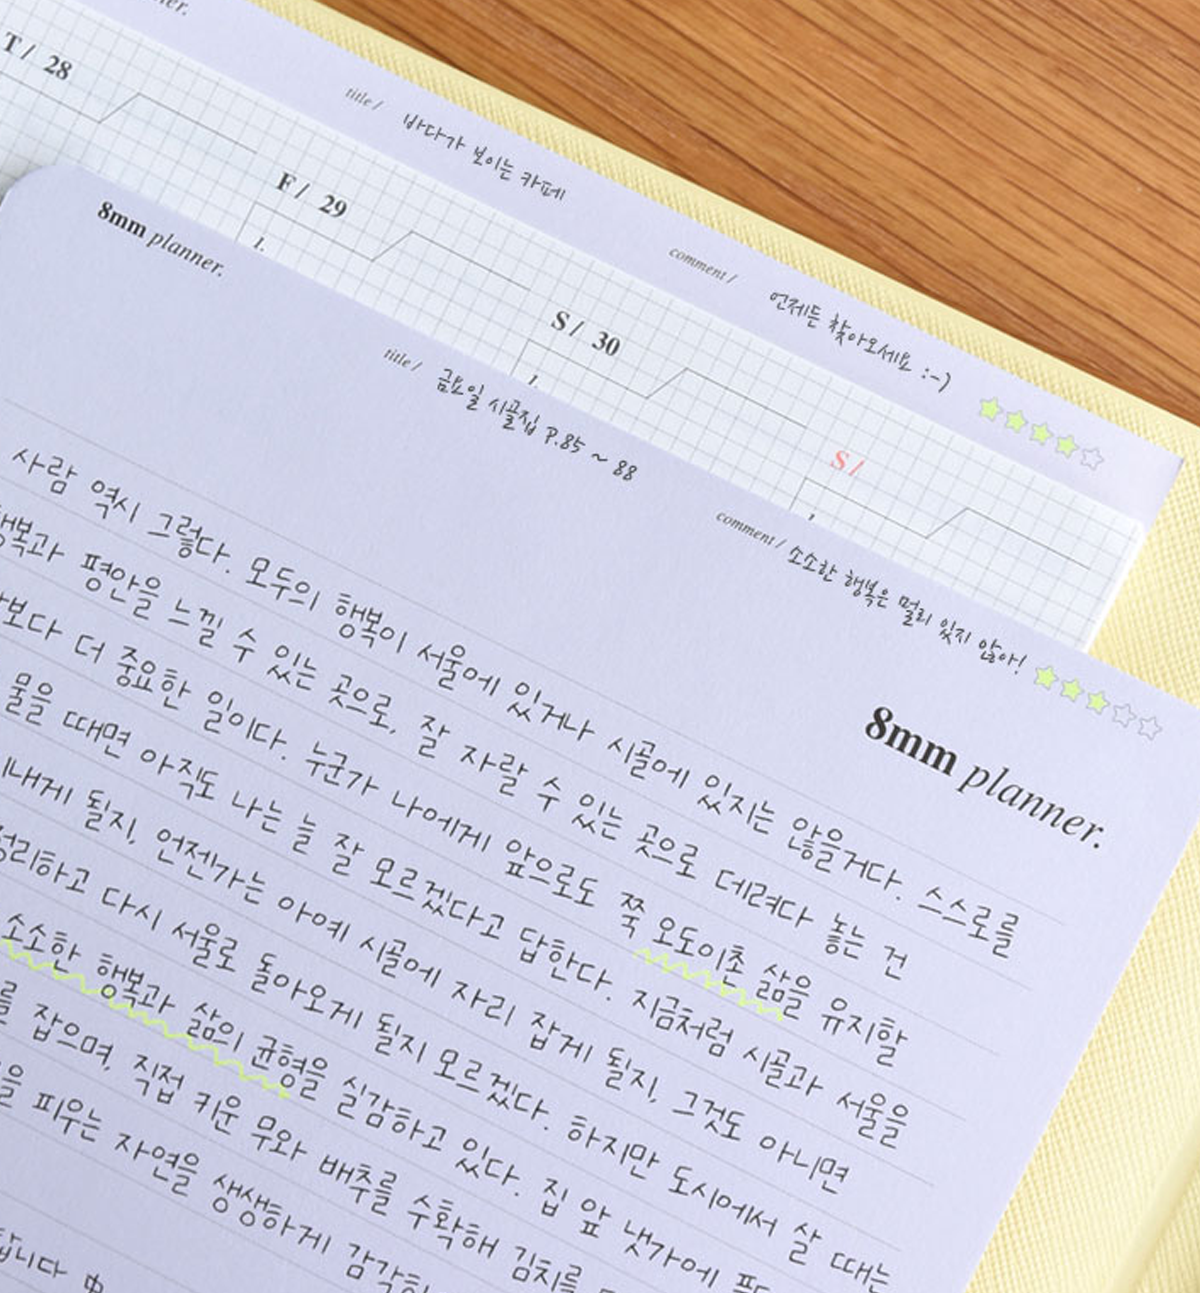 T / 28
title / 바다가 보이는 카페
comment / 언제든 찾아오세요 :-)
F / 29
1.
S / 30
1.
S /
8mm planner.
title / 금요일 시골집 P.85 ~ 88
comment / 소소한 행복은 멀리 있지 않아!
8mm planner.
사람 역시 그렇다. 모두의 행복이 서울에 있거나 시골에 있지는 않을거다. 스스로를
행복과 평안을 느낄 수 있는 곳으로, 잘 자랄 수 있는 곳으로 데려다 놓는 건
보다 더 중요한 일이다. 누군가 나에게 앞으로도 쭉 오도이촌 삶을 유지할
물을 때면 아직도 나는 늘 잘 모르겠다고 답한다. 지금처럼 시골과 서울을
내게 될지, 언젠가는 아예 시골에 자리 잡게 될지, 그것도 아니면
정리하고 다시 서울로 돌아오게 될지 모르겠다. 하지만 도시에서 살 때는
소소한 행복과 삶의 균형을 실감하고 있다. 집 앞 냇가에
를 잡으며, 직접 키운 무와 배추를 수확해 김치를
을 피우는 자연을 생생하게